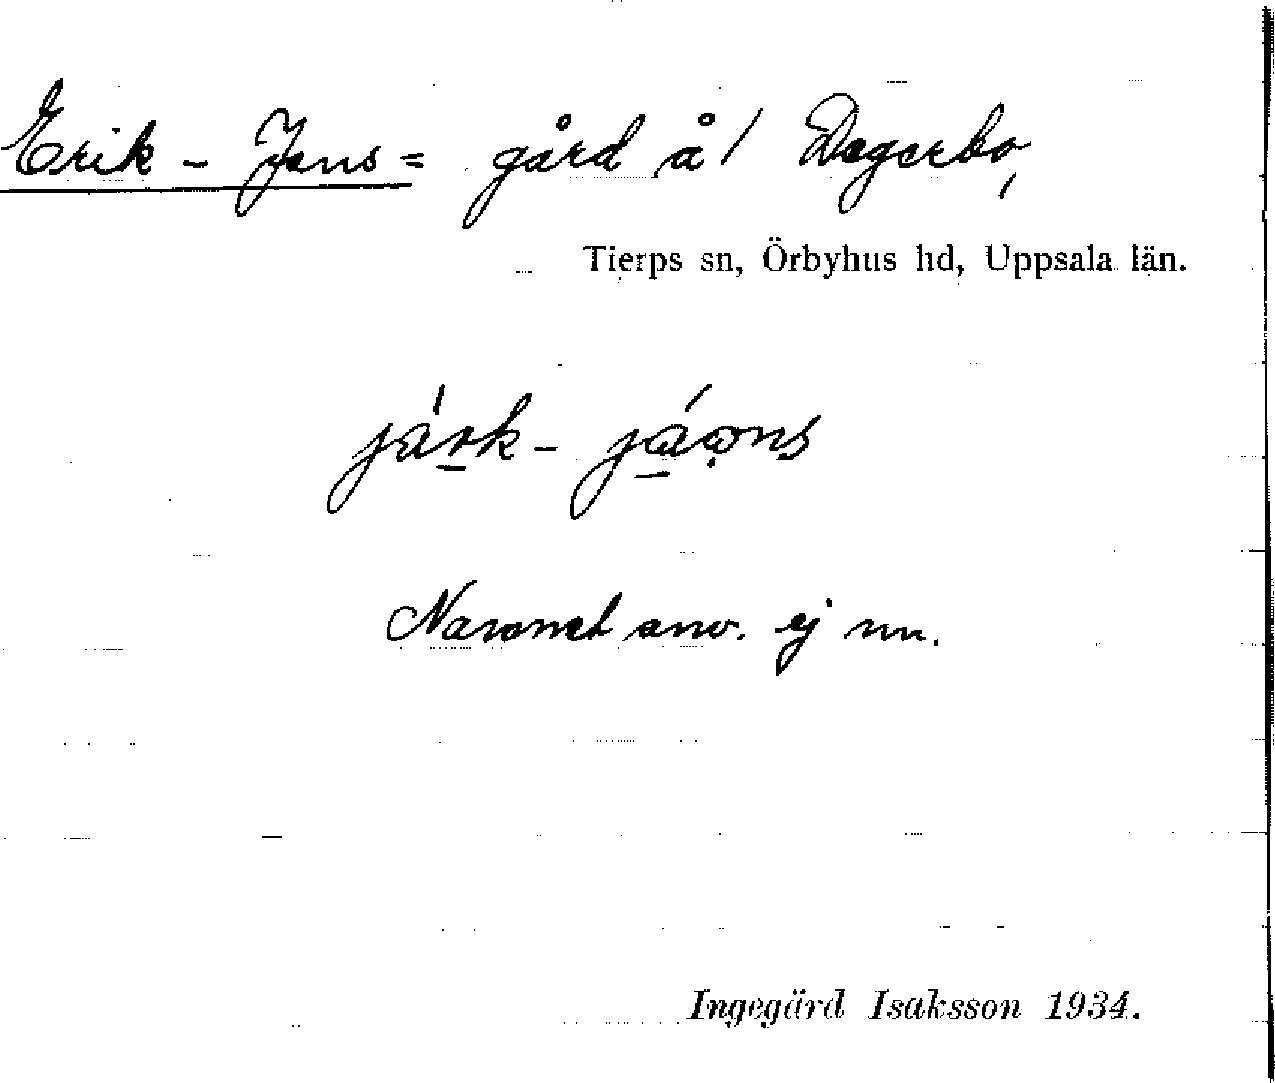 Erik - Jens = gård å / Degerbo,
Tierps sn, Örbyhus hd, Uppsala län.
Namnet anv. ej nu.
Ingegärd Isaksson 1934.